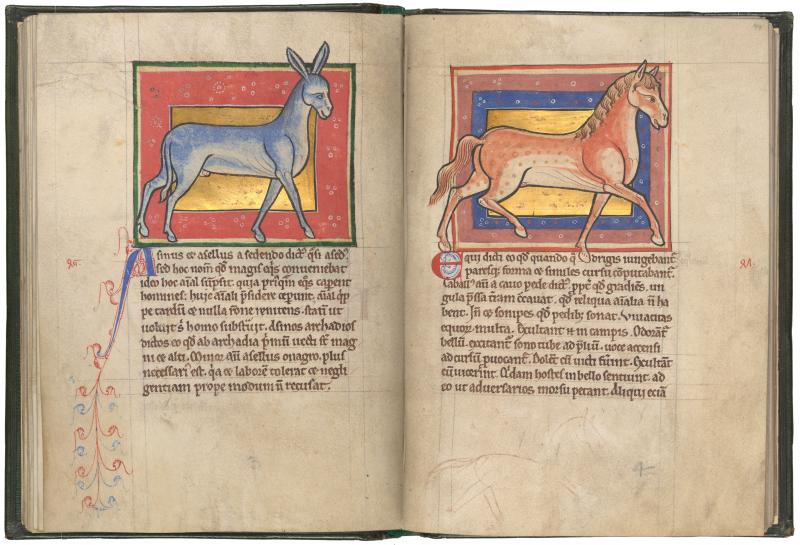 Asinus et asellus a sedendo dict' qsi ased'
sed hoc nom qd magis eqis conveniebat
ideo hoc aial supsit. quia priusqm eqos caperent
homines: huic aiali psidere ceperunt. aial qp
pe tardum et nulla rone renitens. statim ut
voluit s' homo substrauit. Asinos archadios
dictos eo qd ab archadia primum uecti st mag
ni et alti. Minor aut asellus onagro, plus
necessari est. qa et laborem tolerat et negli
gentiam prope modum n recusat.
Equi dicti eo qd quando qdrigis iungebant
paresq forma et similes cursu cputabant.
Caball' aut a cauo pede dict' ppt qd gradiens, un
gula pssa tram cauat. qd reliqua aialia n ha
bent. In et sonipes qd pedib; sonat. Viuacitas
equor multa. Exultant in campis. Odorant
bellum. excitant sono tube ad plium. uoce accensi
ad cursum puocant. Dolent cum uicti fuerint. Exultant
cum uicerint. Qdam hostes in bello sentiunt. ad
eo ut aduersarios morsu petant. Aliqui eciam